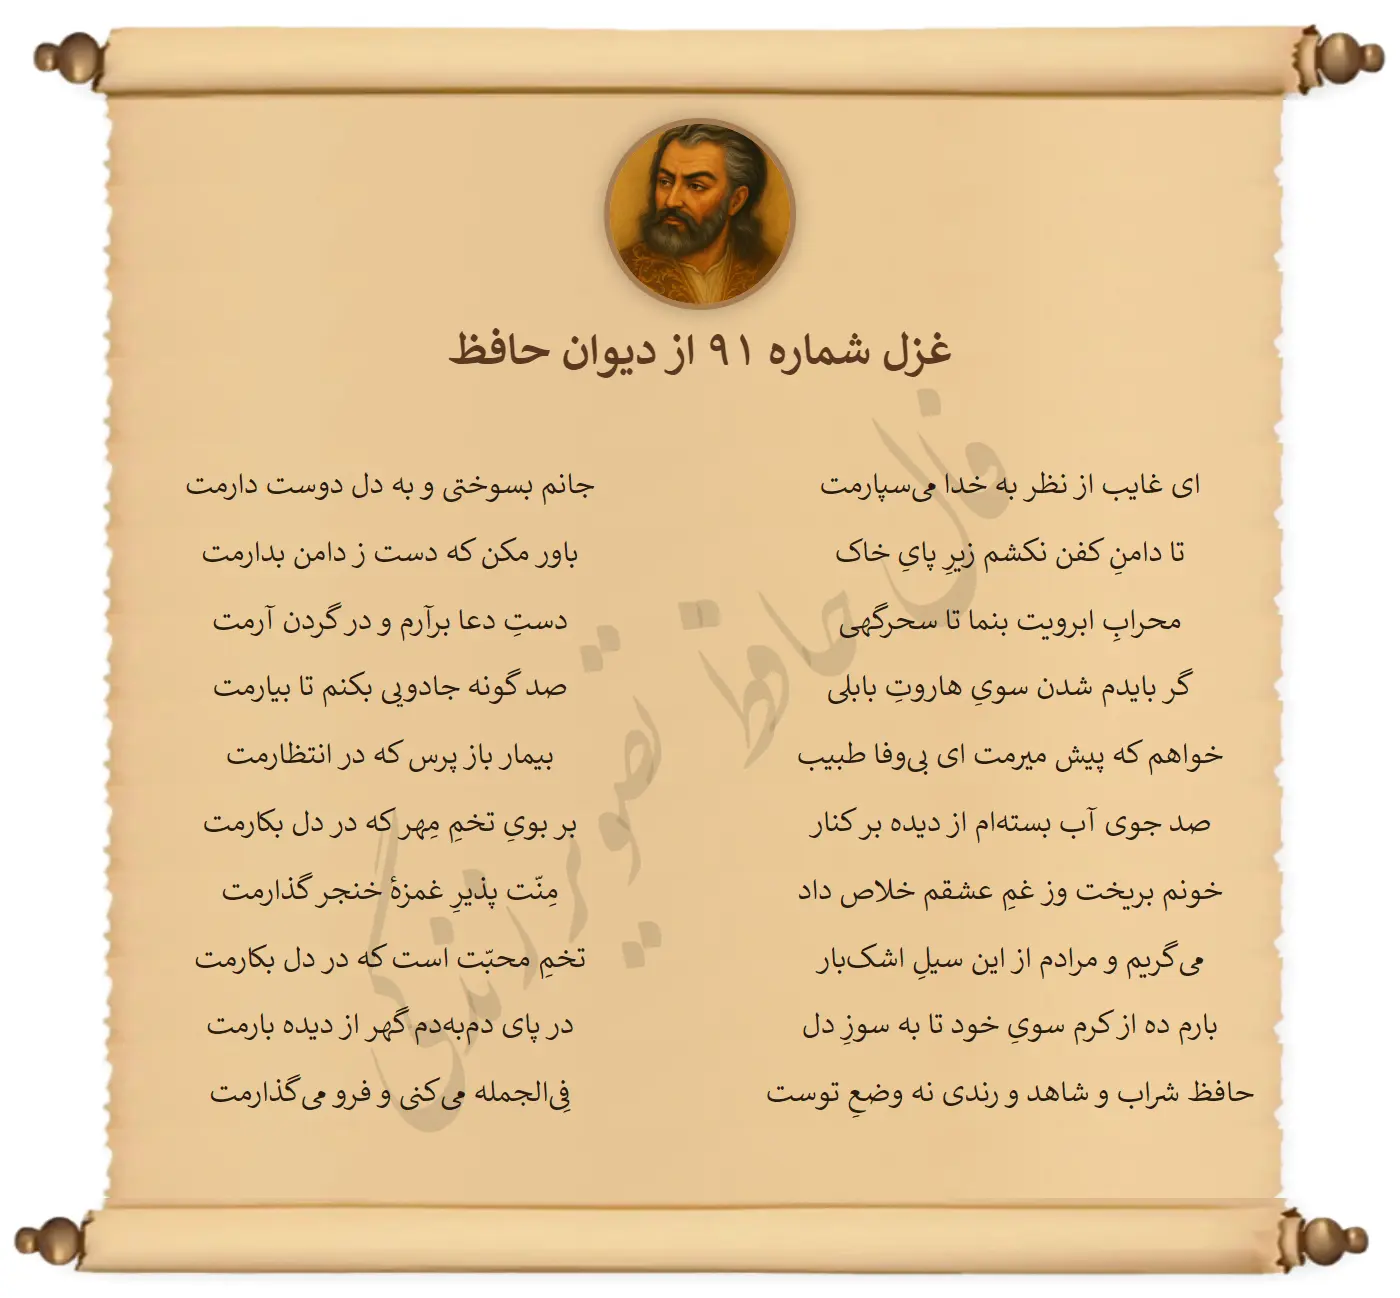 غزل شماره ۹۱ از دیوان حافظ
ای غایب از نظر به خدا می‌سپارمت
جانم بسوختی و به دل دوست دارمت
تا دامنِ کفن نکشم زیرِ پایِ خاک
باور مکن که دست ز دامن بدارمت
محرابِ ابرویت بنما تا سحرگهی
دستِ دعا برآرم و در گردن آرمت
گر بایدم شدن سویِ هاروتِ بابلی
صد گونه جادویی بکنم تا بیارمت
خواهم که پیش میرمت ای بی‌وفا طبیب
بیمار باز پرس که در انتظارمت
صد جوی آب بسته‌ام از دیده بر کنار
بر بویِ تخمِ مِهر که در دل بکارمت
خونم بریخت وز غمِ عشقم خلاص داد
مِنّت پذیرِ غمزهٔ خنجر گذارمت
می‌گریم و مرادم از این سیلِ اشک‌بار
تخمِ محبّت است که در دل بکارمت
بارم ده از کرم سویِ خود تا به سوزِ دل
در پای دم‌به‌دم گهر از دیده بارمت
حافظ شراب و شاهد و رندی نه وضعِ توست
فِی‌الجمله می‌کنی و فرو می‌گذارمت
فال حافظ تصویر زندگی